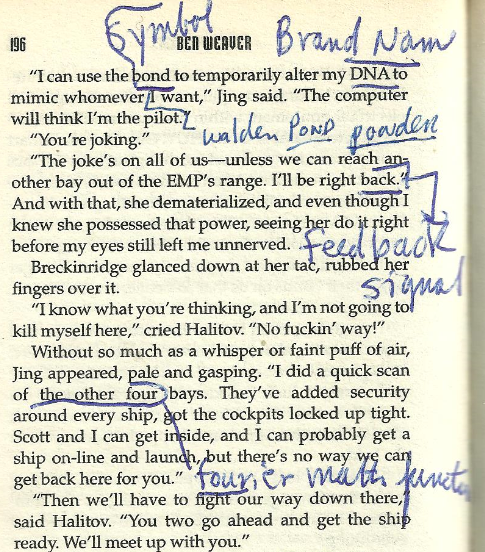 Symbol
196 BEN WEAVER Brand Nam
"I can use the bond to temporarily alter my DNA to
mimic whomever I want," Jing said. "The computer
will think I'm the pilot."
walden POND
"You're joking."
"The joke's on all of us—unless we can reach an-
other bay out of the EMP's range. I'll be right back."
And with that, she dematerialized, and even though I
knew she possessed that power, seeing her do it right
before my eyes still left me unnerved.
feedback
signal
Breckinridge glanced down at her tac, rubbed her
fingers over it.
"I know what you're thinking, and I'm not going to
kill myself here," cried Halitov. "No fuckin' way!"
Without so much as a whisper or faint puff of air,
Jing appeared, pale and gasping. "I did a quick scan
of the other four bays. They've added security
around every ship, got the cockpits locked up tight.
Scott and I can get inside, and I can probably get a
ship on-line and launch, but there's no way we can
get back here for you."
fourier math functi
"Then we'll have to fight our way down there,"
said Halitov. "You two go ahead and get the ship
ready. We'll meet up with you."